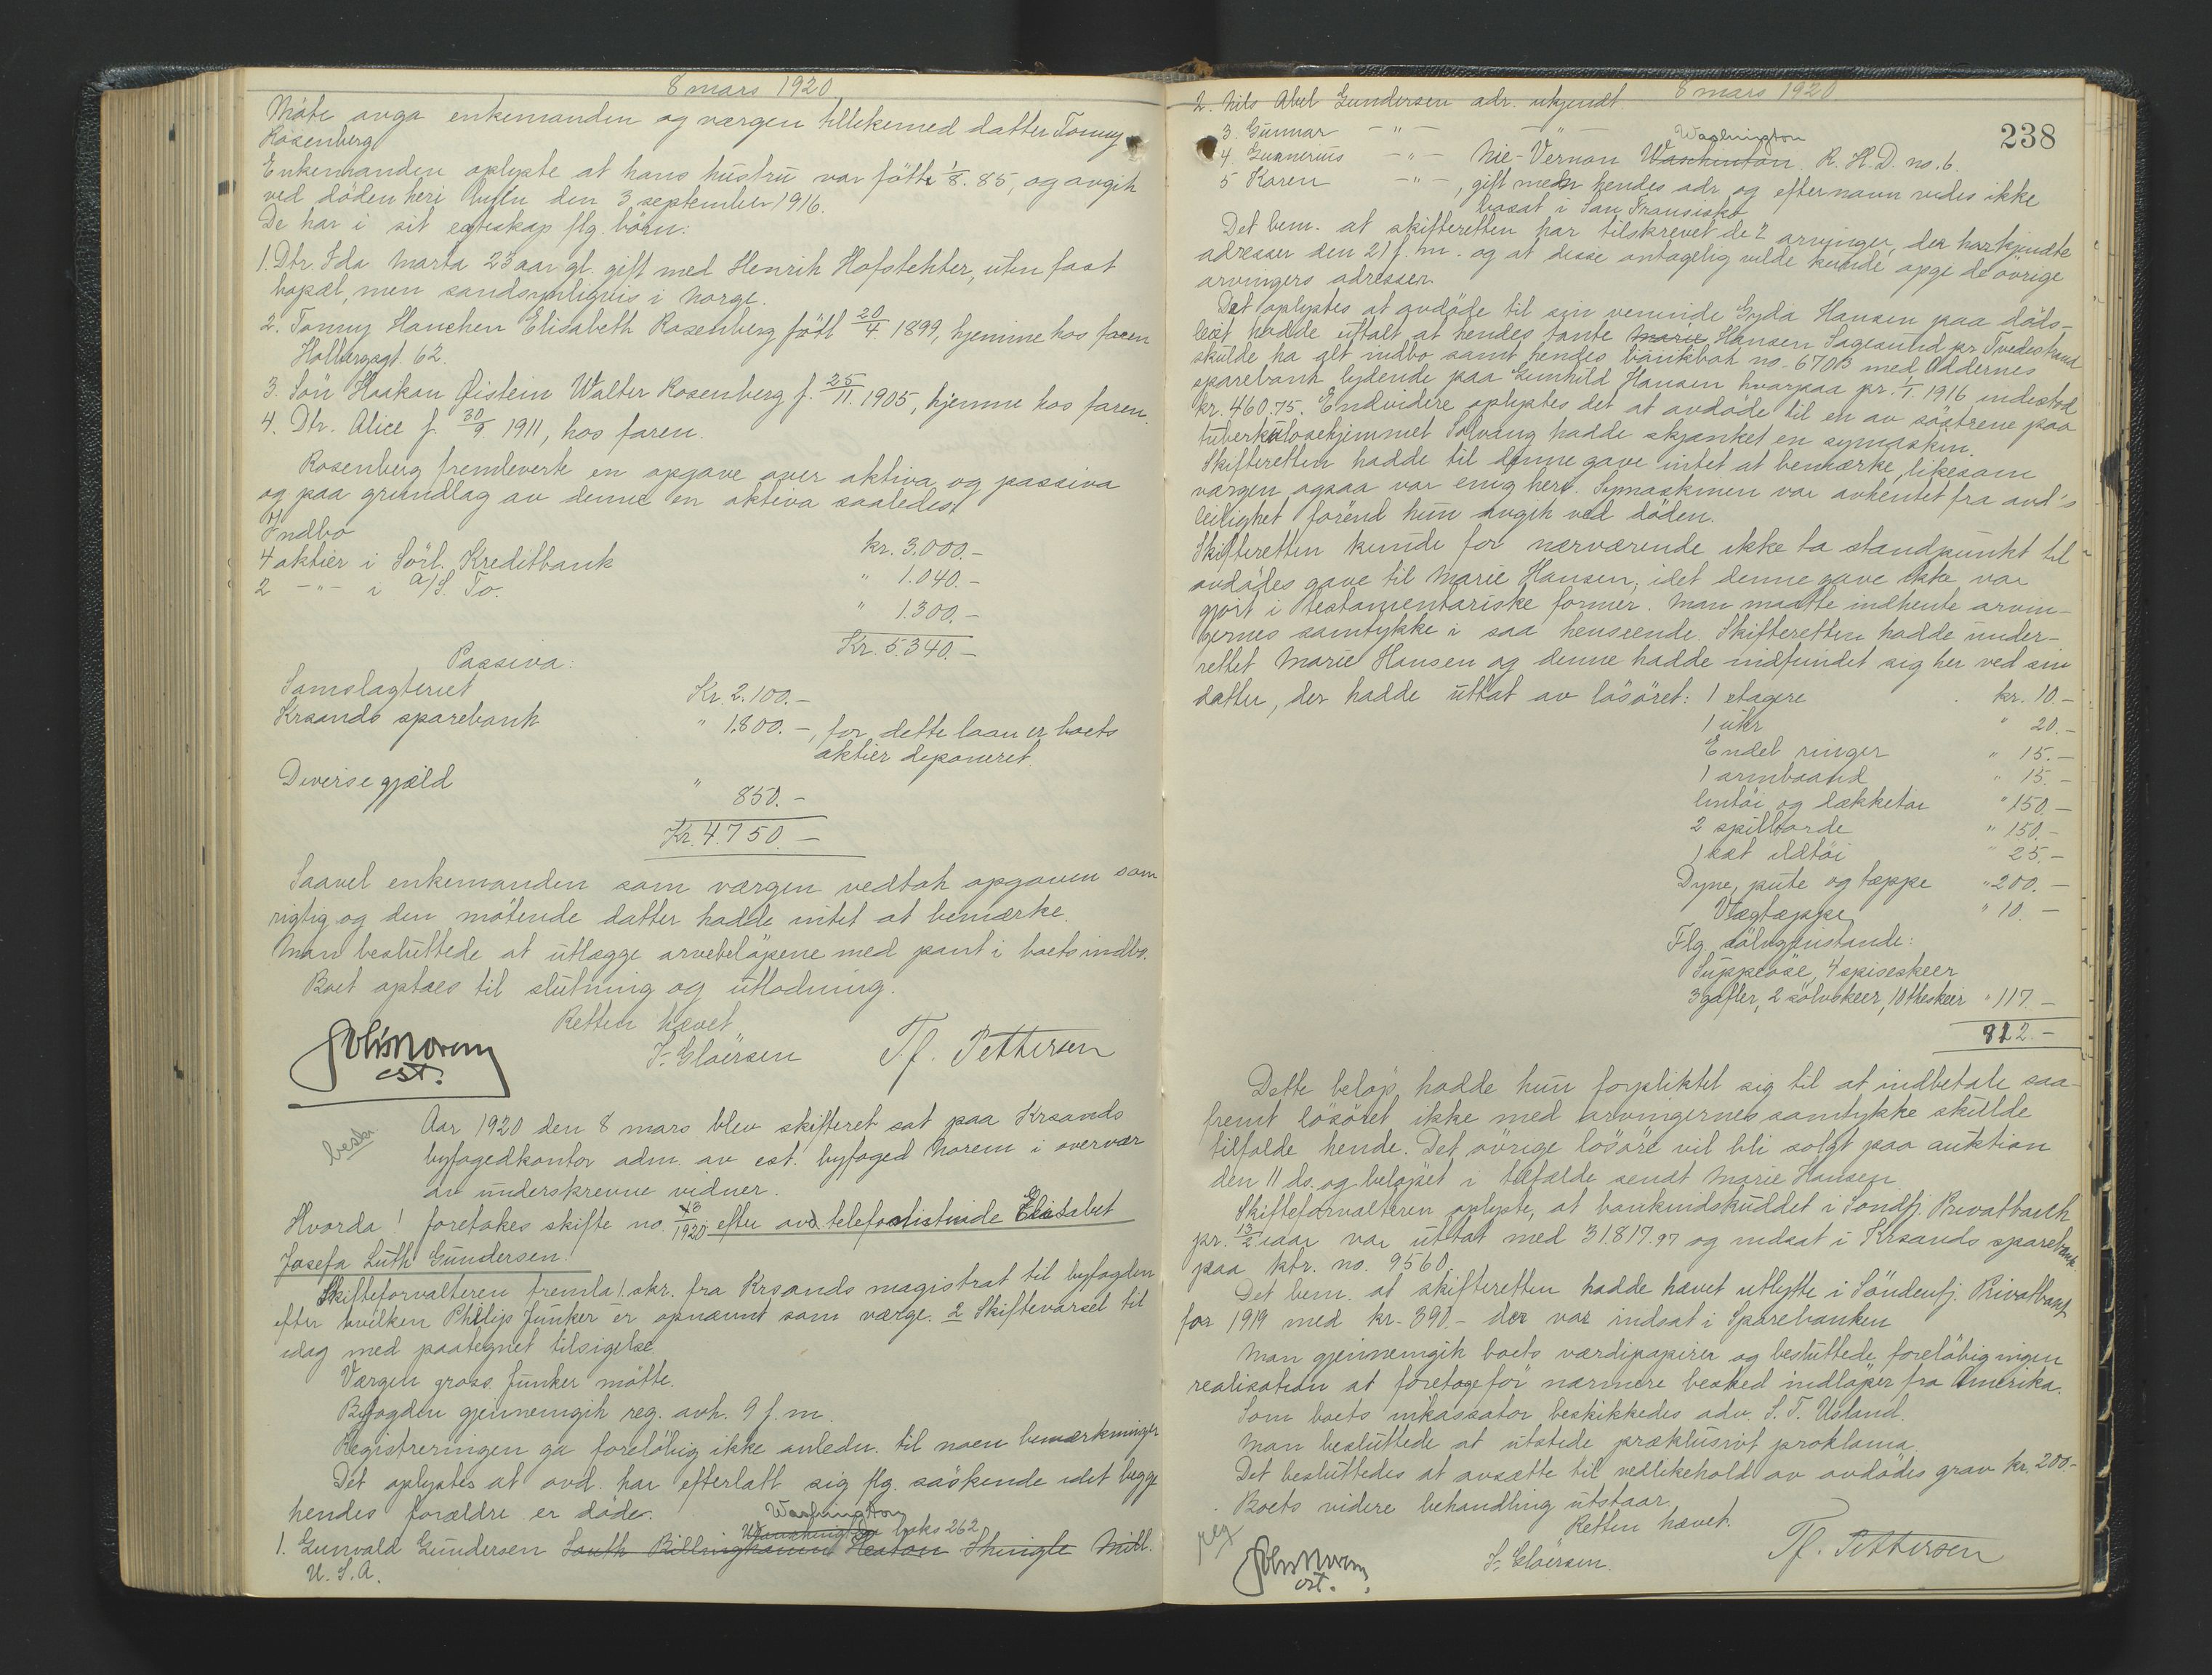 8 mars 1920
Möte avga enkemanden og værgen tillikemed datter Tonny
Rosenberg
Enkemanden oplyste at hans hustru var född 1/8. 85, og avgik
ved döden heri byen den 3 september 1916.
De har i sit egteskap flg. börn:
1. Dtr. Ida Marta 23 aar gl. gift med Henrik Hofstehter, uten fast
bopæl, men sandsynligvis i Norge.
2. Tonny Hanchen Elisabeth Rosenberg född 20/4. 1899, hjemme hos faren
Holbergsgt. 62.
3. Sön Haakon Øistein Walter Rosenberg f. 25/11. 1905, hjemme hos faren.
4. Dtr. Alice f. 30/9 1911, hos faren.
Rosenberg fremleverte en opgave over aktiva og passiva
og paa grundlag av denne en aktiva saaledes:
Indbo kr. 3.000.-
4 aktier i Sörl. Kreditbank " 1.040.-
2 -"- i A/S. To. " 1.300.-
Kr. 5.340.-
Passiva:
Samslagteriet Kr. 2.100.-
Krsands sparebank " 1.800.-, for dette laan er boets
aktier deponeret.
Diverse gjæld " 850.-
Kr. 4.750.-
Saavel enkemanden som værgen vedtok opgaven som
rigtig og den mötende datter hadde intet at bemærke.
Man besluttede at utlægge arvebelöpene med pant i boets indbo.
Boet optaes til slutning og utlodning.
Retten hævet
est. S. Gloërsen T.f. Pettersen
besk.
Aar 1920 den 8 mars blev skifteret sat paa Krsands
byfogedkontor adm. av cst. byfoged Norem i overvær
av underskrevne vidner.
Hvorda! foretokes skifte no. 13/1920 efter avd. telefonistinde Elisabet
Josefa Luth Gundersen.
Skifteforvalteren fremla 1. skr. fra Krsands magistrat til byfogden
efter hvilken Philip Junker er opnævnt som værge. 2 Skiftevarsel til
idag med paategnet tilsigelse.
Værgen gross. Junker mötte.
Byfogden gjennemgik reg. avh. 9 f. m.
Registreringen ga foreløbig ikke anledn. til noen bemærkninger
Det oplystes at avd. har efterlatt sig flg. söskende idet begge
hendes forældre er döde.
Washington
boks 262
1. Gunvald Gundersen South Billinghamn Heaton Shingle Mill.
U. S. A.
8 mars 1920
238
2. Nils Abel Gundersen adr. ukjendt
3. Gunnar -"- -"-
Washington
4. Gunnerius -"- Nie-Vernon Waschinton. R. H. D. no. 6
5 Karen -"-, gift men hendes adr. og efternavn vides ikke
bosat i San Fransisko
Det bem. at skifteretten har tilskrevet de 2 arvinger, der har kjendte
adresser den 21 f. m. og at disse antagelig vilde kunde opgi de övrige
arvingers adresser.
Det oplystes at avdöde til sin venninde Gyda Hansen paa döds-
leiet hadde uttalt at hendes tante Marie Hansen Sagesund pr. Tvedestrand
skulde ha alt indbo samt hendes bankbok no. 6703 med Oddernes
sparebank lydende paa Gunhild Hansen hvorpaa pr. 1/1 1916 indestod
kr. 460.75. Endvidere oplystes det at avdöde til en av söstrene paa
tuberkulosehjemmet Solvang hadde skjænket en symaskin.
Skifteretten hadde til denne gave intet at bemærke, likesom
værgen ogsaa var enig heri. Symaskinen var avhentet fra avd's
leilighet förend hun avgik ved döden.
Skifteretten kunde for nærværende ikke ta standpunkt til
avdödes gave til Marie Hansen, idet denne gave ikke var
gjort i testamentariske former. Man maatte indhente arvin-
gernes samtykke i saa henseende. Skifteretten hadde under-
rettet Marie Hansen og denne hadde indfundet sig her ved sin
datter, der hadde uttat av lösöret: 1 etagere kr. 10.-
1 ukr " 20.-
Endel ringer " 15.-
1 armbaand " 15.-
lintöi og dækketöi " 150.-
2 spillborde " 150.-
1 sæt ildtöi " 25.-
Dyne, pute og tæppe " 200.-
Vægtæppe " 10.-
Flg. sölvgjenstande:
Suppeöse, 4 spiseskeer
3 gafler, 2 sölvskeer, 10 theskeer " 117.-
812.-
Dette belöp hadde hun forpliktet sig til at indbetale saa-
fremt lösöret ikke med arvingernes samtykke skulde
tilfalde hende. Det övrige lösöre vil bli solgt paa auktion
den 11 ds. og belöpet i tilfælde sendt Marie Hansen.
Skifteforvalteren oplyste, at bankindskuddet i Söndfj. Privatbank
pr. 13/2 iaar var uttat med 31.817.97 og indsat i Krsands sparebank
paa ktr. no. 9560.
Det bem. at skifteretten hadde hævet utbytte i Söndenfj. Privatbank
for 1919 med kr. 390.- der var indsat i Sparebanken
Man gjennemgik boets værdipapirer og besluttede foreløbig ingen
realisation at foretage för nærmere besked indlöper fra Amerika.
Som boets inkassator beskikkedes adv. S. T. Usland.
Man besluttede at utstede præklusivt proklama.
Det besluttedes at avsætte til vedlikehold av avdödes grav kr. 200.-
Boets videre behandling utstaar.
Retten hævet.
reg
est. S. Gloërsen. T.f. Pettersen